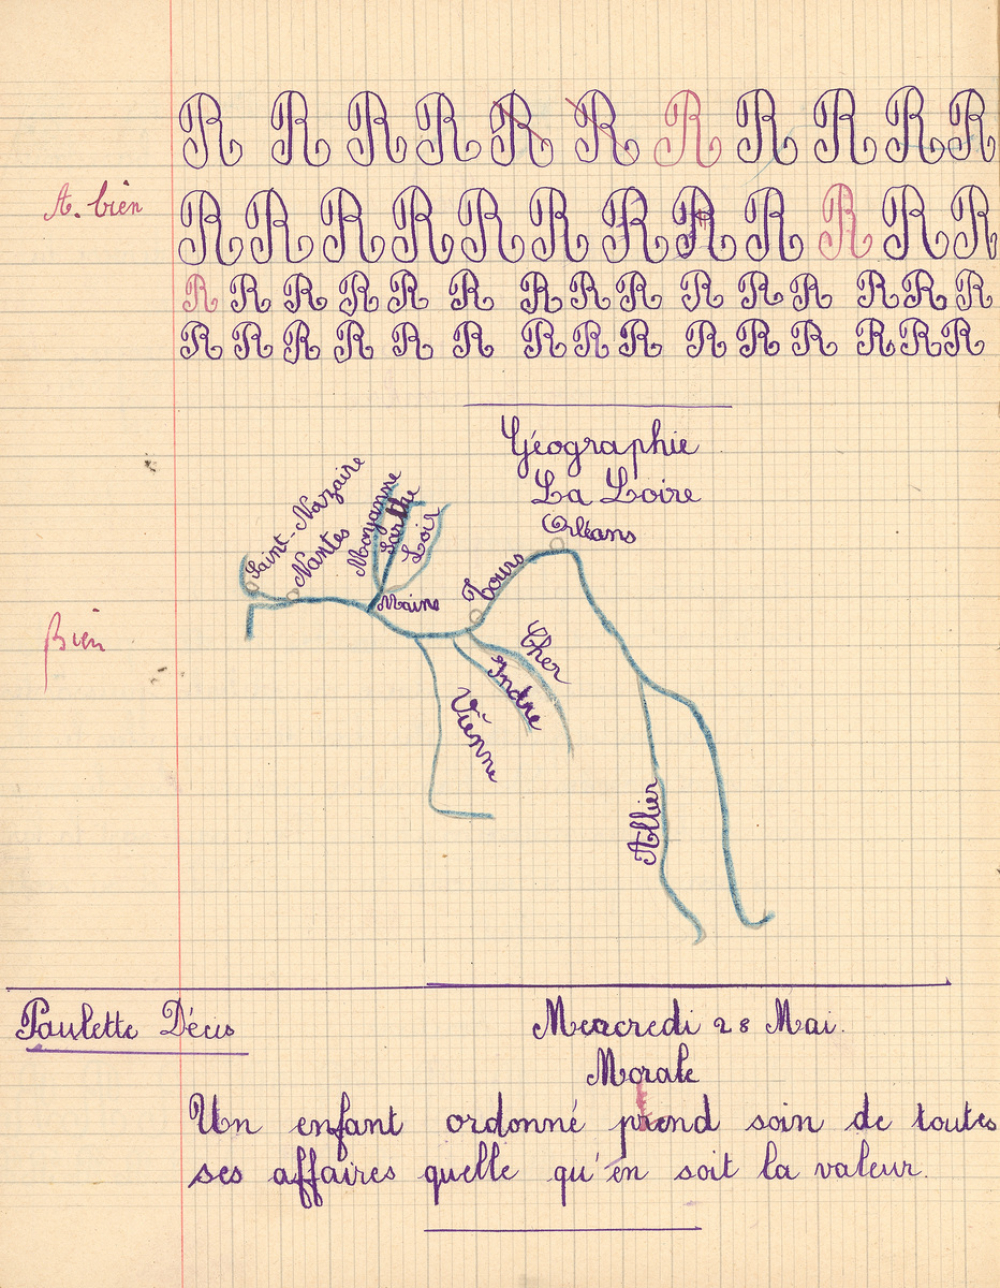 R R R R R R R R R R R
A. bien
R R R R R R R R R R R R
R R R R R R R R R R R R R R R
R R R R R R R R R R R R R R R
Géographie
La Loire
Orléans
Saint-Nazaire
Nantes
Mayenne
Sarthe
Loir
Maine
Tours
Bien
Cher
Indre
Vienne
Allier
Paulette Décis
Mercredi 28 Mai.
Morale
Un enfant ordonné prend soin de toutes
ses affaires quelle qu'en soit la valeur.